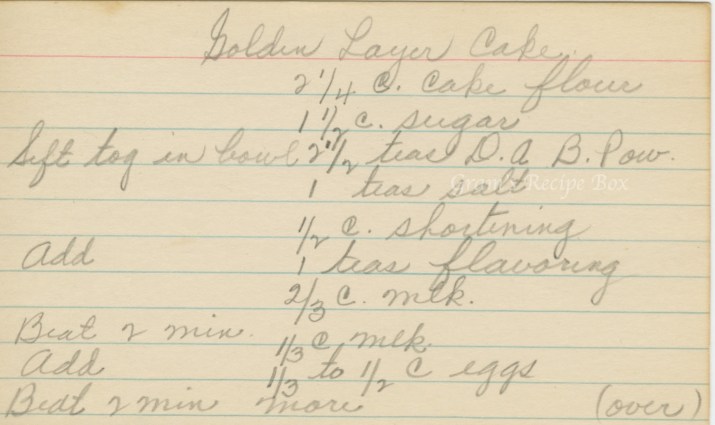 Golden Layer Cake
2 1/4 c. cake flour
1 1/2 c. sugar
Sift tog in bowl 2 1/2 teas D.A B. Pow.
1 teas salt
Recipe Box
1/2 c. shortening
Add 1 teas flavoring
2/3 c. mlk.
Beat 2 min. 1/3 c mlk.
Add 1/3 to 1/2 c eggs
Beat 2 min more (over)